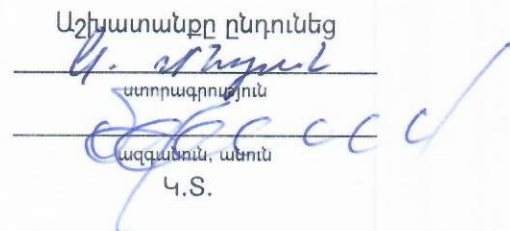 Աշխատանքը ընդունեց
ստորագրություն
ազգանուն, անուն
Կ.Տ.